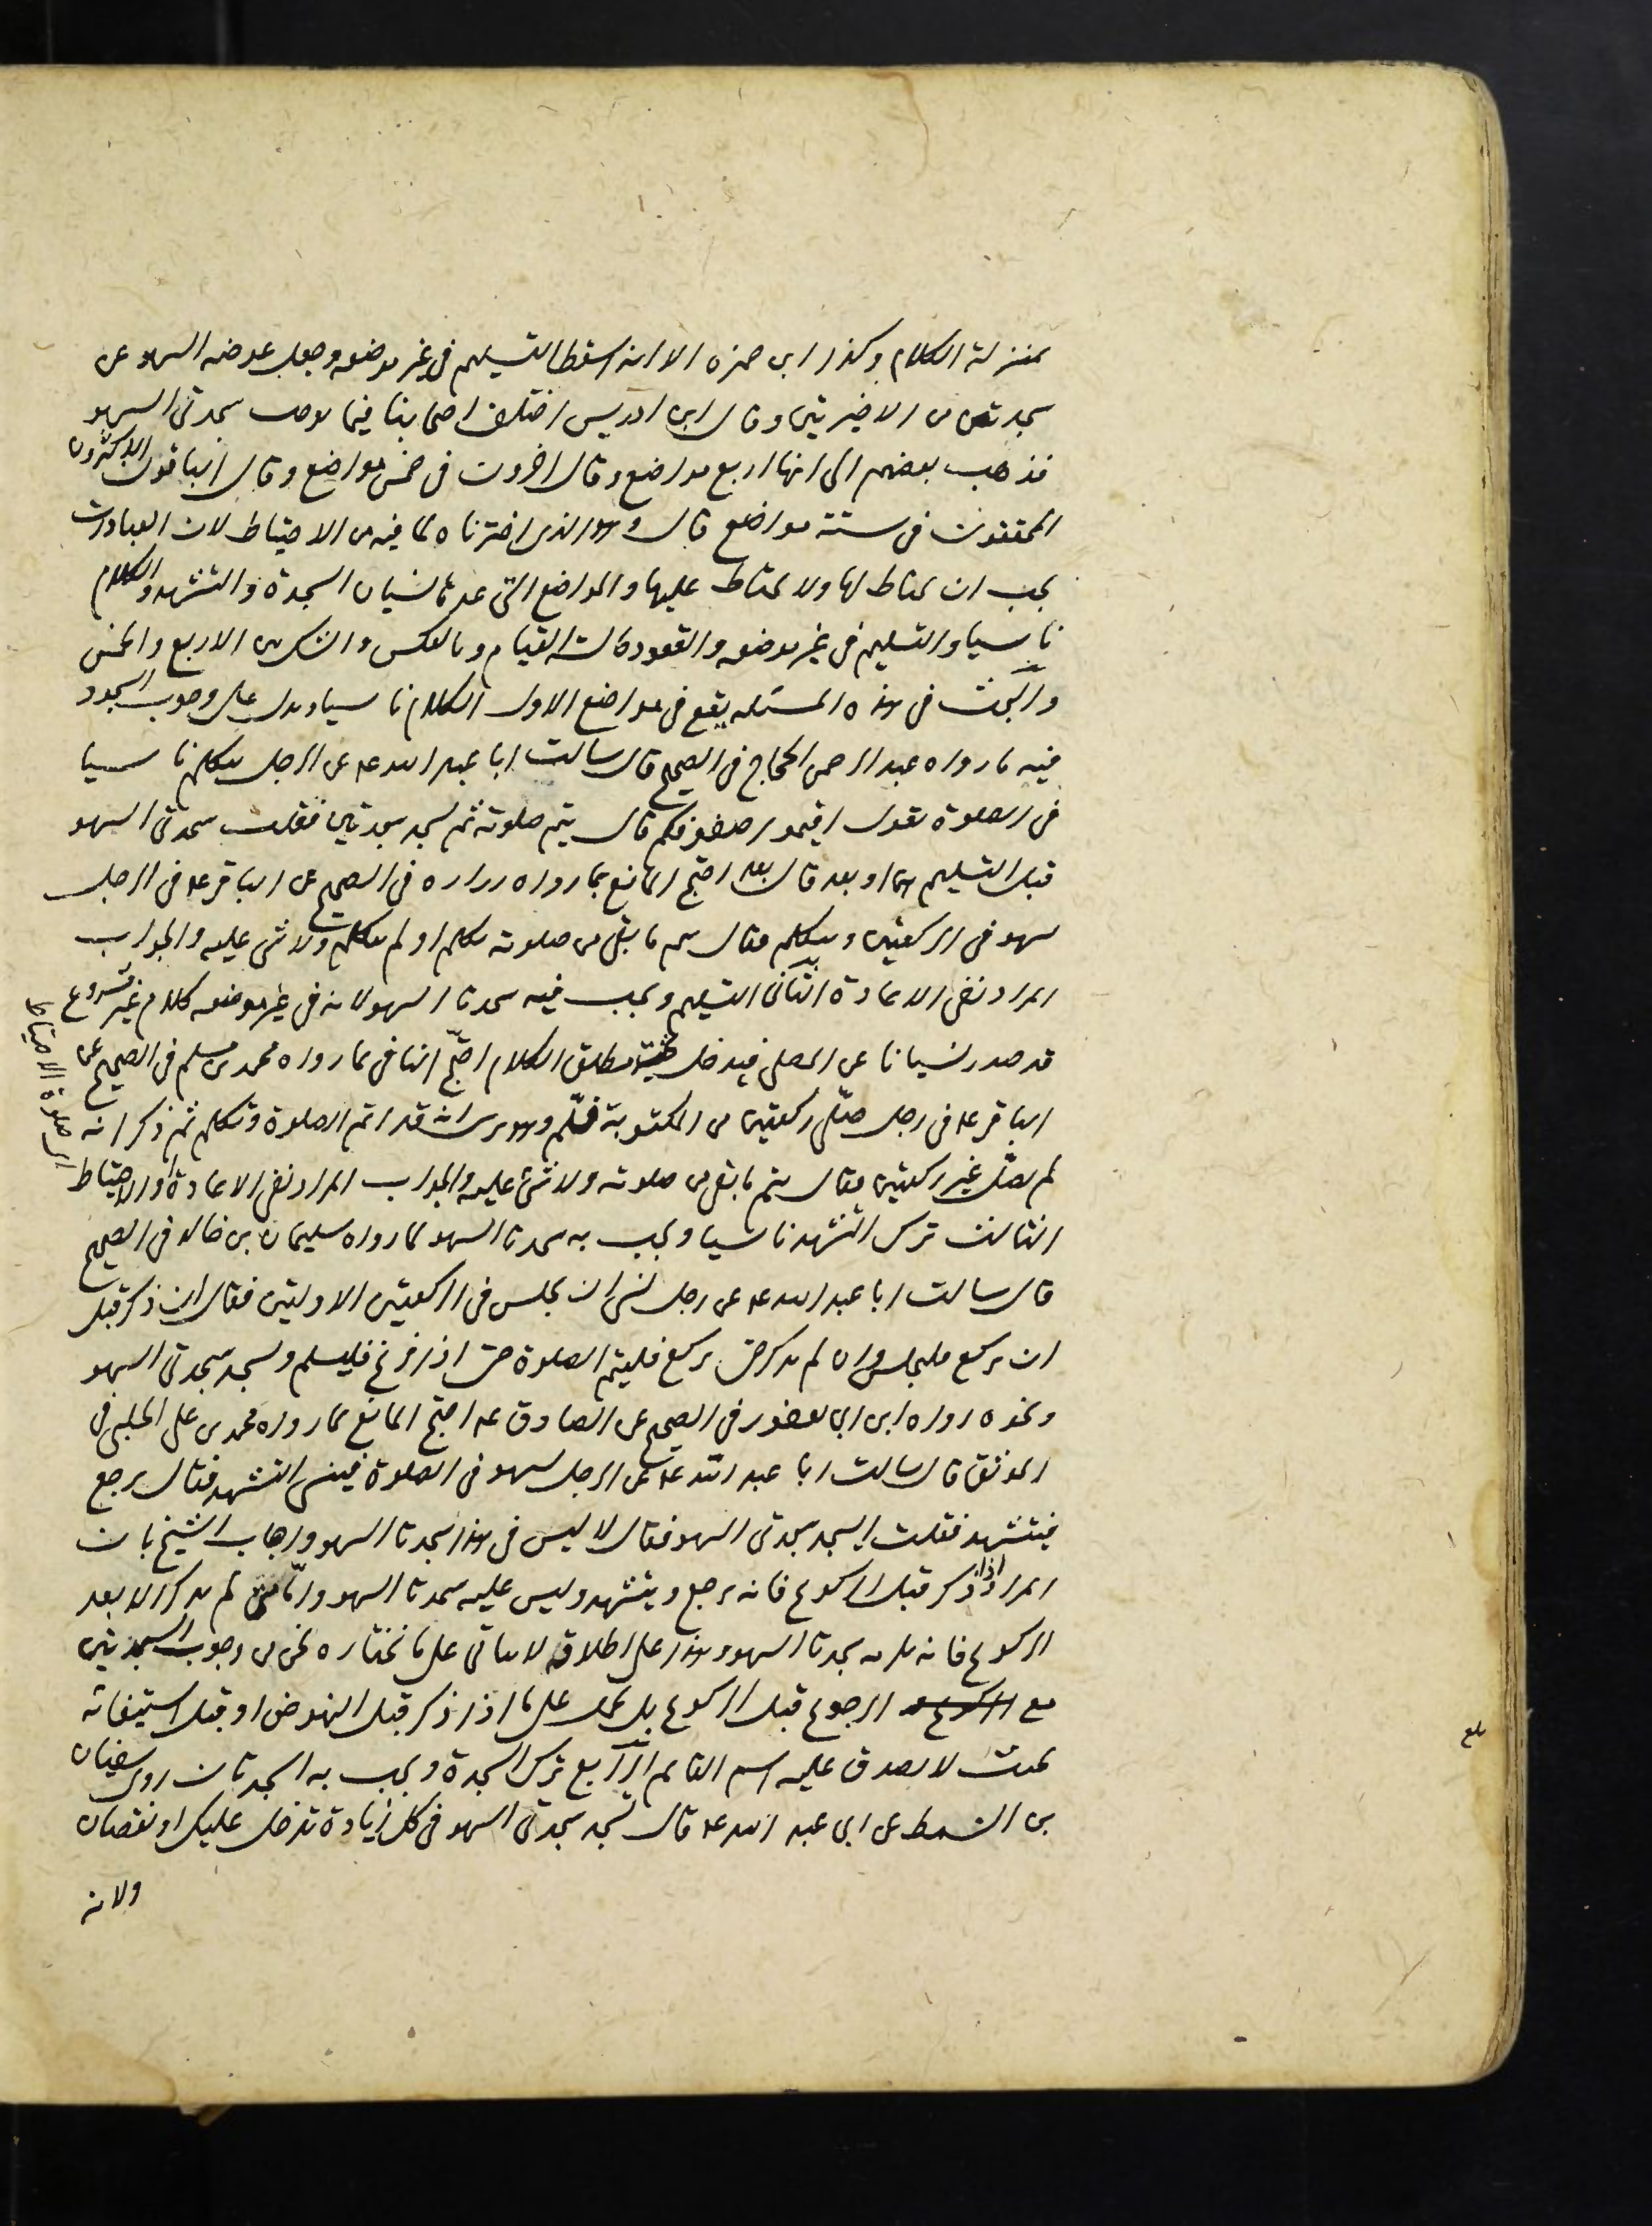 بمنزلة الكلام وكذا ابن حمزه الا انه اسقط التسليم فى غير موضعه وجعل عوضه السهو عن
سجدتين من الاخيرتين وقال ابن ادريس اختلف اصحابنا فيما يوجب سجدتى السهو
فذهب بعضهم الى انها اربع مواضع وقال اخرون فى خمس مواضع وقال الباقون الاكثرون
المحققون فى ستة مواضع قال وهو الذى اخترناه لما فيه من الاحتياط لان العبادات
يجب ان يحتاط لها ولا يحتاط عليها والمواضع التى عدها نسيان السجدة والتشهد والكلام
ناسيا والتسليم فى غير موضعه والقعود حالة القيام وبالعكس والشك بين الاربع والخمس
والبحث فى هذه المسئله يقع فى مواضع الاول الكلام ناسيا ويدل على وجوب السجود
فيه ما رواه عبد الرحمن الحجاج فى الصحيح قال سالت ابا عبد الله ع عن الرجل يتكلم ناسيا
فى الصلوة يقول اقيموا صفوفكم قال يتم صلوته ثم يسجد سجدتين فقلت سجدتى السهو
قبل التسليم هما او بعد قال بعد احتج المانع بما رواه زراره فى الصحيح عن الباقر ع فى الرجل
يسهو فى الركعتين ويتكلم فقال يتم ما بقى من صلوته تكلم او لم يتكلم ولا شى عليه والجواب
المراد نفى الاعادة الثانى التسليم ويجب فيه سجدتا السهو لانه فى غير موضعه كلام غير مشروع
قد صدر نسيانا عن المصلى فيدخل تحت مطلق الكلام احتج النافى بما رواه محمد بن مسلم فى الصحيح عن
الباقر ع فى رجل صلى ركعتين من المكتوبة فسلم وهو يرى انه قد اتم الصلوة وتكلم ثم ذكر انه
لم يصل غير ركعتين فقال يتم ما بقى من صلوته ولا شئ عليه والجواب المراد نفى الاعادة او الاحتياط
اى صلوة الاحتياط
الثالث ترك التشهد ناسيا ويجب به سجدتا السهو لما رواه سليمان بن خالد فى الصحيح
قال سالت ابا عبد الله ع عن رجل نسى ان يجلس فى الركعتين الاوليتين فقال ان ذكر قبل
ان يركع فليجلس وان لم يذكر حتى يركع فليتم الصلوة حتى اذا فرغ فليسلم وليسجد سجدتى السهو
ونحوه رواه ابن ابى يعفور فى الصحيح عن الصادق ع احتج المانع بما رواه محمد بن على الحلبى فى
الموثق قال سالت ابا عبد الله ع عن الرجل يسهو فى الصلوة فينسى التشهد فقال يرجع
فيتشهد فقلت ايسجد سجدتى السهو فقال لا ليس فى هذا سجدتا السهو واجاب الشيخ بان
المراد اذا ذكر قبل الركوع فانه يرجع ويتشهد وليس عليه سجدتا السهو وامّا متى لم يذكر الا بعد
الركوع فانه يلزمه سجدتا السهو وهذا على اطلاقه لا يتأتى على ما نختاره نحن من وجوب السجدتين
مع الرجوع قبل الركوع بل يحمل على ما اذا ذكر قبل النهوض او قبل استيفائه
بحيث لا يصدق عليه اسم القائم الرابع ترك السجدة ويجب به السجدتان روى سفيان
بن السمط عن ابى عبد الله ع قال تسجد سجدتى السهو فى كل زيادة تدخل عليك او نقصان
ولانه
بلغ